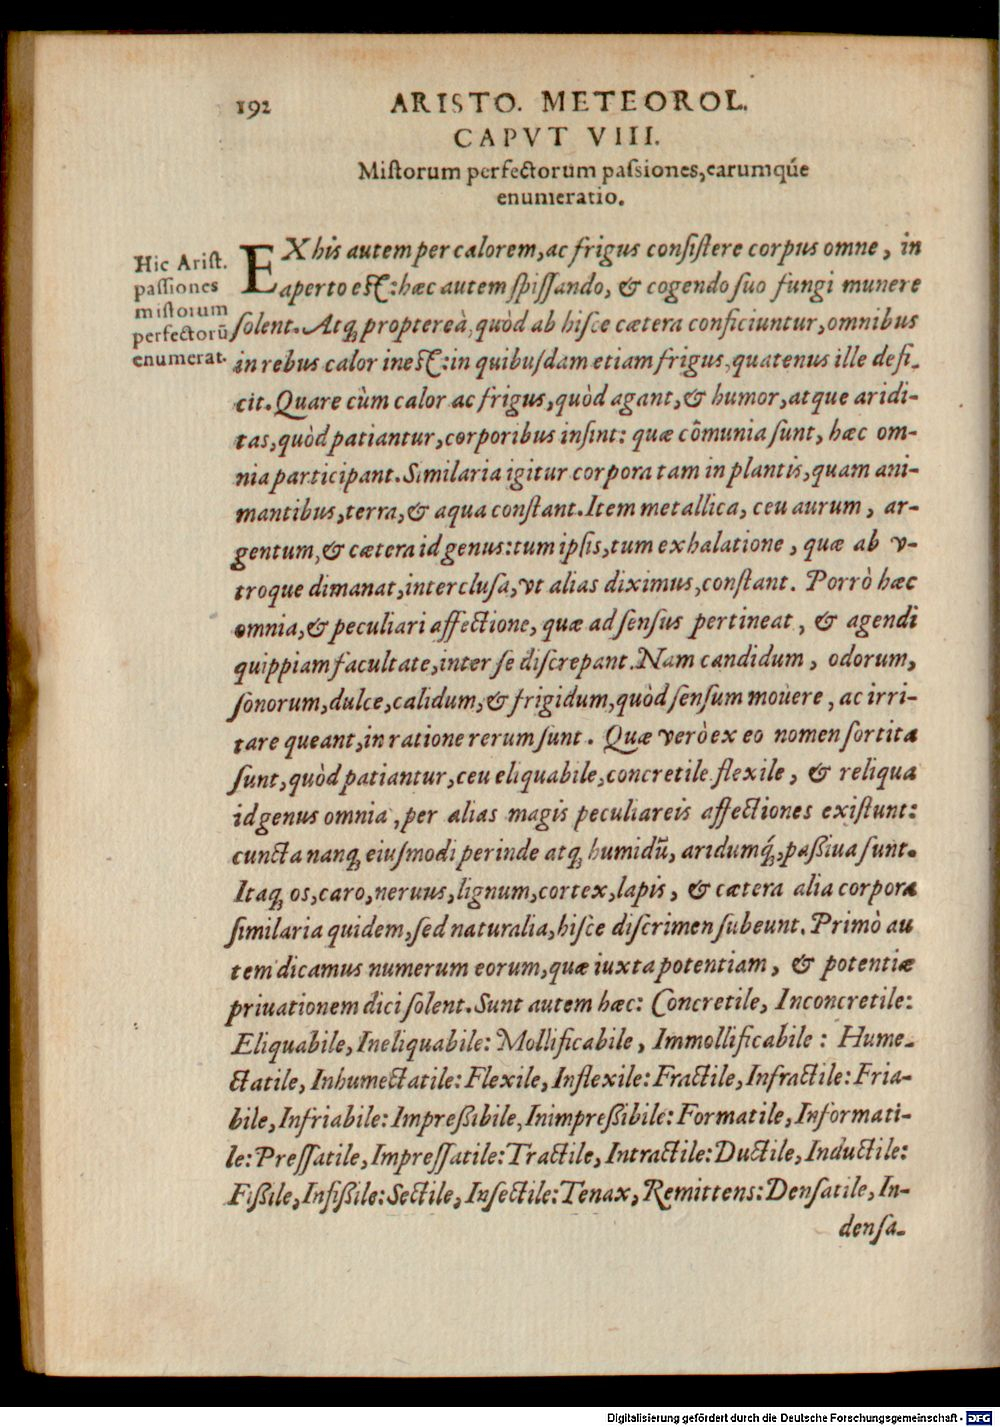 192 ARISTO. METEOROL.
CAPVT VIII.
Miſtorum perfectorum paſsiones, earumq́ue
enumeratio.
Hic Ariſt.
paſſiones
miſtorum
perfectorũ
enumerat.
EX his autem per calorem, ac frigus conſiſtere corpus omne, in
aperto eſt: hæc autem ſpiſſando, & cogendo ſuo fungi munere
ſolent. Atq; propterea, quòd ab hiſce cætera conficiuntur, omnibus
in rebus calor ineſt: in quibuſdam etiam frigus, quatenus ille defi-
cit. Quare cùm calor ac frigus, quòd agant, & humor, atque aridi-
tas, quòd patiantur, corporibus inſint: quæ cõmunia ſunt, hæc om-
nia participant. Similaria igitur corpora tam in plantis, quam ani-
mantibus, terra, & aqua conſtant. Item metallica, ceu aurum, ar-
gentum, & cætera id genus: tum ipſis, tum exhalatione, quæ ab v-
troque dimanat, interclusa, vt alias diximus, conſtant. Porrò hæc
omnia, & peculiari affectione, quæ ad ſenſus pertineat, & agendi
quippiam facultate, inter ſe diſcrepant. Nam candidum, odorum,
ſonorum, dulce, calidum, & frigidum, quòd ſenſum mouere, ac irri-
tare queant, in ratione rerum ſunt. Quæ verò ex eo nomen ſortita
ſunt, quòd patiantur, ceu eliquabile, concretile flexile, & reliqua
id genus omnia, per alias magis peculiareis affectiones exiſtunt:
cuncta nanq; eiuſmodi perinde atq; humidũ, aridumq́;, paßiua ſunt.
Itaq; os, caro, neruus, lignum, cortex, lapis, & cætera alia corpora
ſimilaria quidem, ſed naturalia, hiſce diſcrimen ſubeunt. Primò au
tem dicamus numerum eorum, quæ iuxta potentiam, & potentiæ
priuationem dici ſolent. Sunt autem hæc: Concretile, Inconcretile:
Eliquabile, Ineliquabile: Mollificabile, Immollificabile: Hume-
ctatile, Inhumectatile: Flexile, Inflexile: Fractile, Infractile: Fria-
bile, Infriabile: Impreßibile, Inimpreßibile: Formatile, Informati-
le: Preſſatile, Impreſſatile: Tractile, Intractile: Ductile, Inductile:
Fißile, Infißile: Sectile, Inſectile: Tenax, Remittens: Denſatile, In-
denſa-
Digitalisierung gefördert durch die Deutsche Forschungsgemeinschaft - DFG